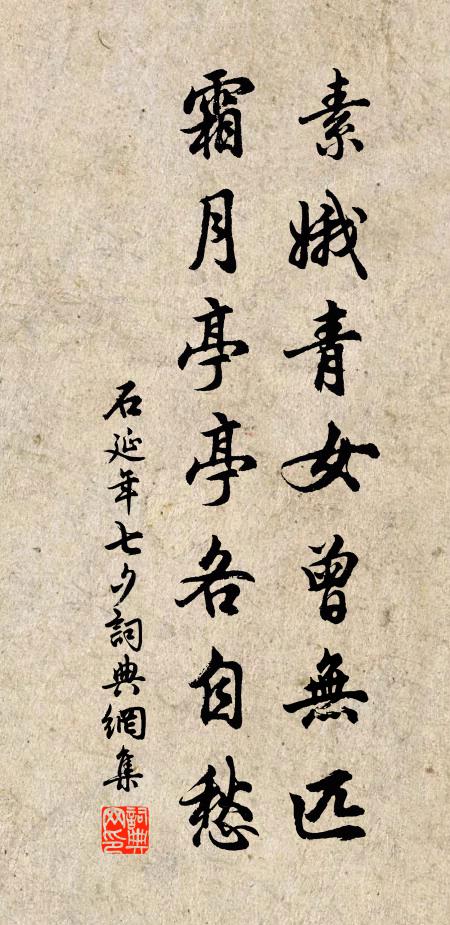 素娥青女曾無匹
霜月亭亭各自愁
石延年七夕詞典網集
詞典網印